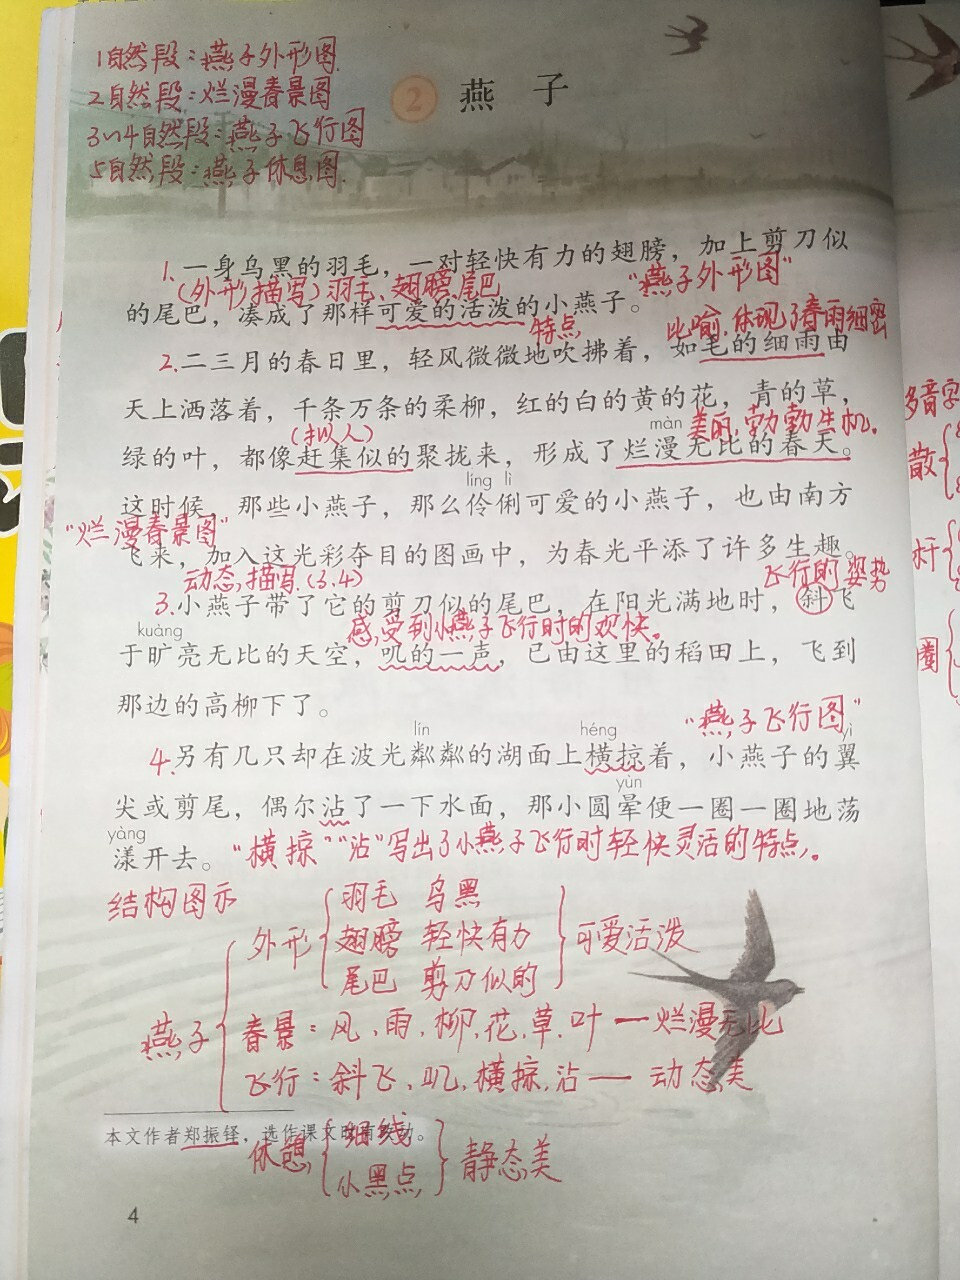 1自然段：燕子外形图
2自然段：烂漫春景图
3~4自然段：燕子飞行图
5自然段：燕子休息图.
2 燕子
1.一身乌黑的羽毛，一对轻快有力的翅膀，加上剪刀似
(外形描写)羽毛、翅膀、尾巴 "燕子外形图"
的尾巴，凑成了那样可爱的活泼的小燕子。
特点 比喻.体现了春雨细密
2.二三月的春日里，轻风微微地吹拂着，如毛的细雨由
天上洒落着，千条万条的柔柳，红的白的黄的花，青的草，
(拟人) màn 美丽,勃勃生机.
绿的叶，都像赶集似的聚拢来，形成了烂漫无比的春天。
líng lì
这时候，那些小燕子，那么伶俐可爱的小燕子，也由南方
"烂漫春景图"
飞来，加入这光彩夺目的图画中，为春光平添了许多生趣。
动态描写.(3.4) 飞行的姿势
3.小燕子带了它的剪刀似的尾巴，在阳光满地时，斜飞
kuàng 感受到小燕子飞行时的欢快.
于旷亮无比的天空，叽的一声，已由这里的稻田上，飞到
那边的高柳下了。
"燕子飞行图"
lín héng yì
4.另有几只却在波光粼粼的湖面上横掠着，小燕子的翼
yùn
尖或剪尾，偶尔沾了一下水面，那小圆晕便一圈一圈地荡
yàng
漾开去。"横掠""沾"写出了小燕子飞行时轻快灵活的特点.
结构图示
燕子
外形 羽毛 乌黑
翅膀 轻快有力 可爱活泼
尾巴 剪刀似的
春景：风、雨，柳,花,草.叶一烂漫无比
飞行：斜飞、叽，横掠,沾— 动态美
本文作者郑振铎，选作课文时有改动。
休憩 细线
小黑点 静态美
4
多音字
散
杆
圈